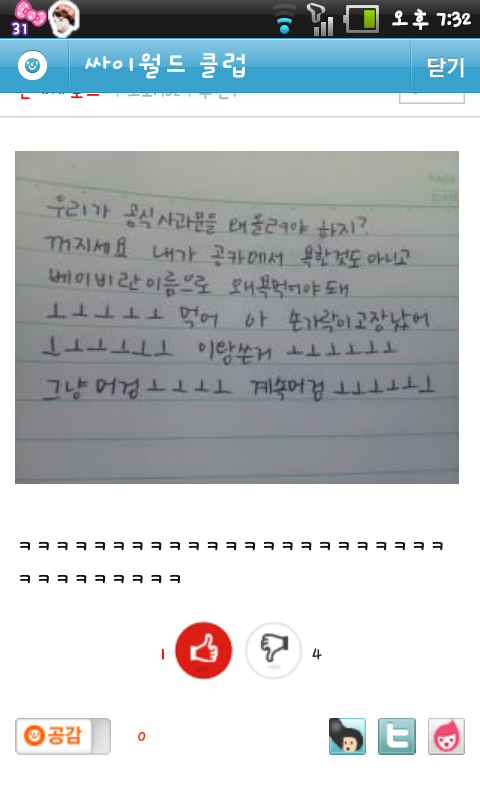 31
오후 7:32
싸이월드 클럽
닫기
PAGE
DATE
우리가 공식사과문을 왜올려야 하지?
꺼지세요 내가 공카에서 욕한것도 아니고
베이비란이름으로 왜욕먹어야돼
ㅗㅗㅗㅗㅗ 먹어 아 손가락이고장났어
ㅗㅗㅗㅗㅗㅗ 이탕쓴거 ㅗㅗㅗㅗㅗㅗ
그냥 머겅 ㅗㅗㅗㅗ 계속머겅 ㅗㅗㅗㅗㅗㅗ
ㅋㅋㅋㅋㅋㅋㅋㅋㅋㅋㅋㅋㅋㅋㅋㅋㅋㅋㅋㅋㅋㅋㅋ
ㅋㅋㅋㅋㅋㅋㅋㅋㅋ
1 4
공감 0